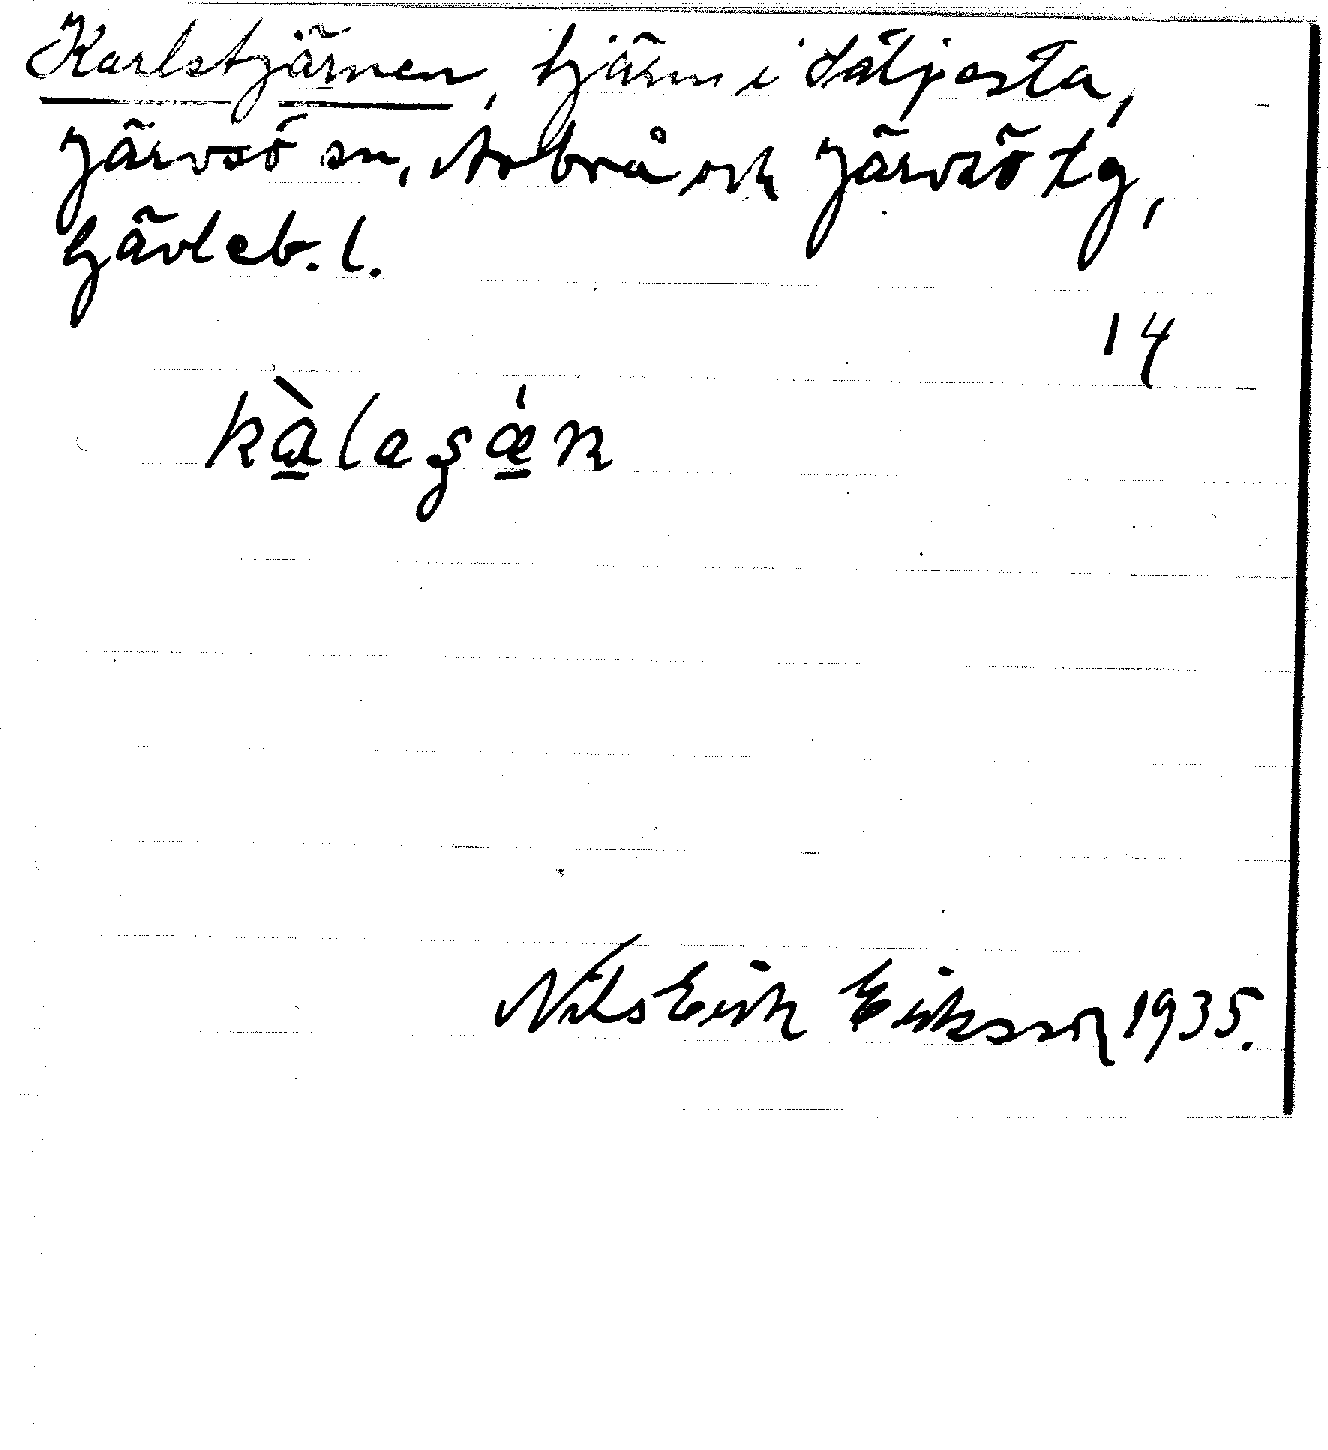 Karlstjärnen, tjärn i Säljesta,
Järvsö sn, Arbrå och Järvsö tg,
Gävleb. l.
14
kàlaşǽn
Nils Erik Eriksson 1935.